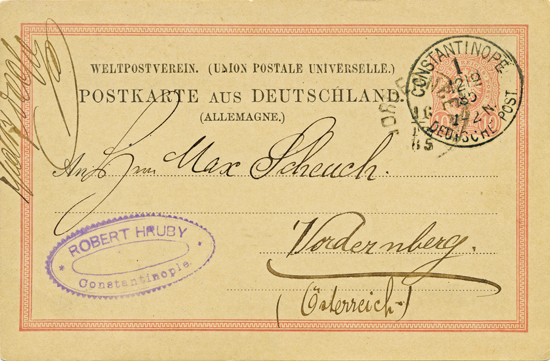 WELTPOSTVEREIN. (UNION POSTALE UNIVERSELLE.)
POSTKARTE AUS DEUTSCHLAND.
(ALLEMAGNE.)
CONSTANTINOPEL
1
DEUTSCHE POST
An Max Scheuch.
Vordernberg.
(Österreich)
* ROBERT HRUBY *
Constantinople